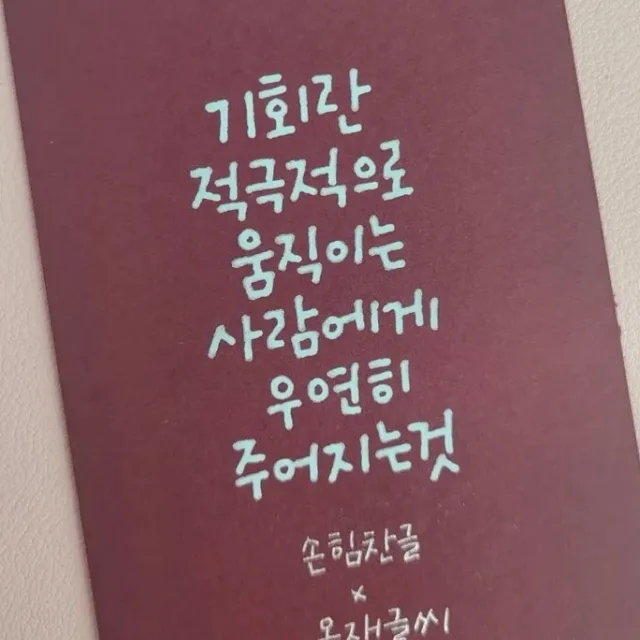 기회란
적극적으로
움직이는
사람에게
우연히
주어지는것
손힘찬글
x
온재글씨